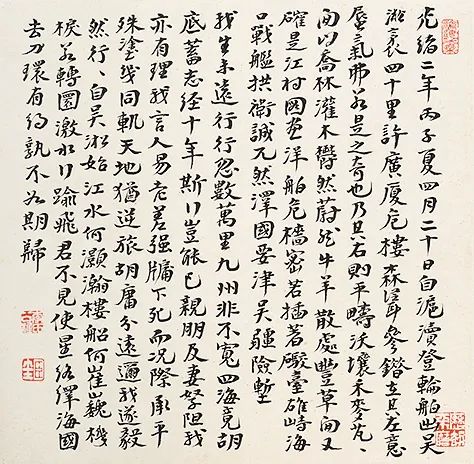 光緒二年丙子夏四月二十日自滬瀆登輪舶出吳
淞袤四十里許廣廈危樓森聳參錯在其左意
蜃氣弗若是之奇也乃其右則平疇沃壤禾麥芃、
間以喬林灌木鬱然蔚然牛羊散處豐草間又
確是江村圖畫洋舶危檣密若插箸礮臺雄峙海
口戰艦拱衛誠兀然澤國要津吳疆險塹
我生未遠行行忽數萬里九州非不寬四海竟胡
底蓄志經十年斯行豈能已親朋及妻孥阻我
亦有理我言人易老差强牖下死而況際承平
殊塗幾同軌天地猶逆旅胡庸分遠邇我遂毅
然行、自吳淞始江水何灝瀚樓船何崔巍機
棙若轉圜激水行踰飛君不見使星絡繹海國
去刀環有約孰不如期歸